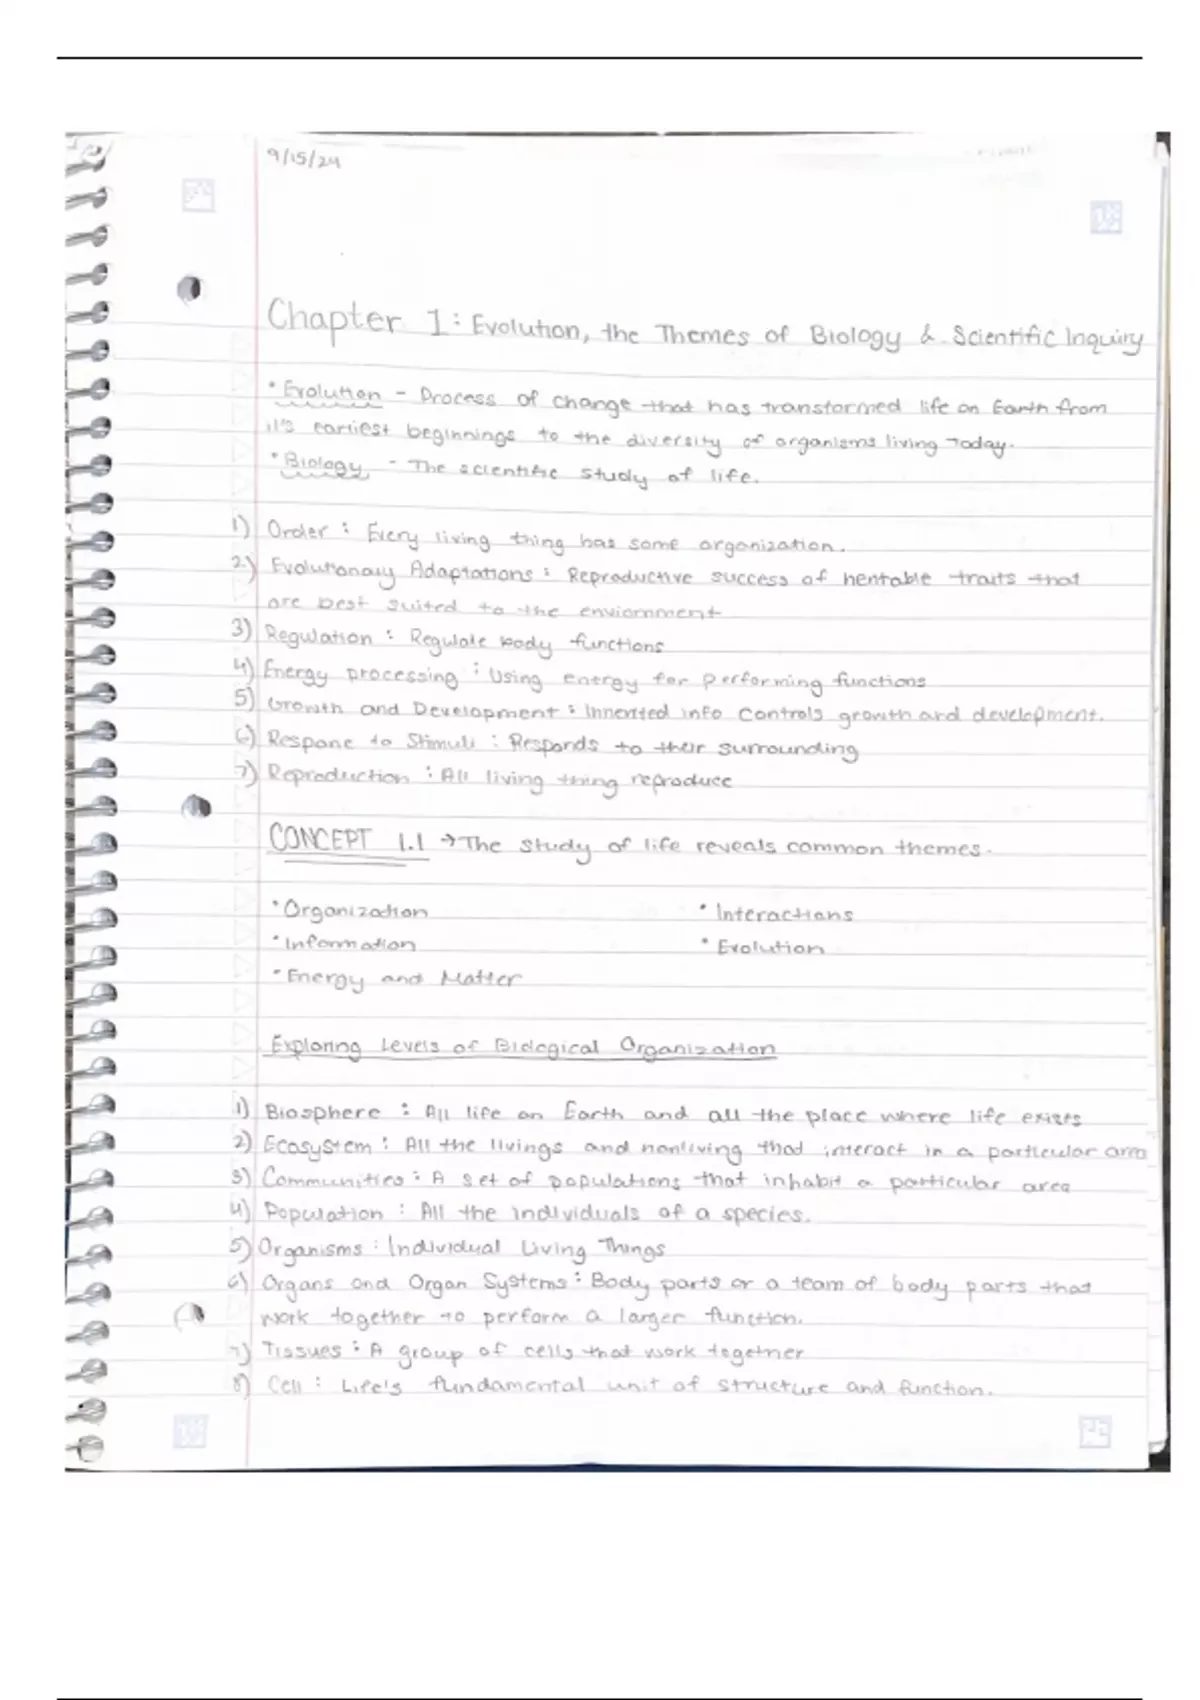 9/15/24
Chapter 1: Evolution, the Themes of Biology & Scientific Inquiry
• Evolution - Process of change that has transformed life on Earth from
it's earliest beginnings to the diversity of organisms living today.
• Biology - The scientific study of life.
1) Order : Every living thing has some organization.
2) Evolutionary Adaptations : Reproductive success of heritable traits that
are best suited to the enviornment
3) Regulation : Regulate body functions
4) Energy processing : Using energy for performing functions
5) Growth and Development : Inherited info controls growth and development.
6) Respone to Stimuli : Responds to their surrounding
7) Reproduction : All living thing reproduce
CONCEPT 1.1 → The study of life reveals common themes.
• Organization • Interactions
• Information • Evolution
• Energy and Matter
Exploring Levels of Biological Organization
1) Biosphere : All life on Earth and all the place where life exists
2) Ecosystem : All the livings and nonliving that interact in a particular area
3) Communities : A set of populations that inhabit a particular area
4) Population : All the individuals of a species.
5) Organisms : Individual Living Things
6) Organs and Organ Systems : Body parts or a team of body parts that
work together to perform a larger function.
7) Tissues : A group of cells that work together
8) Cell : Life's fundamental unit of structure and function.